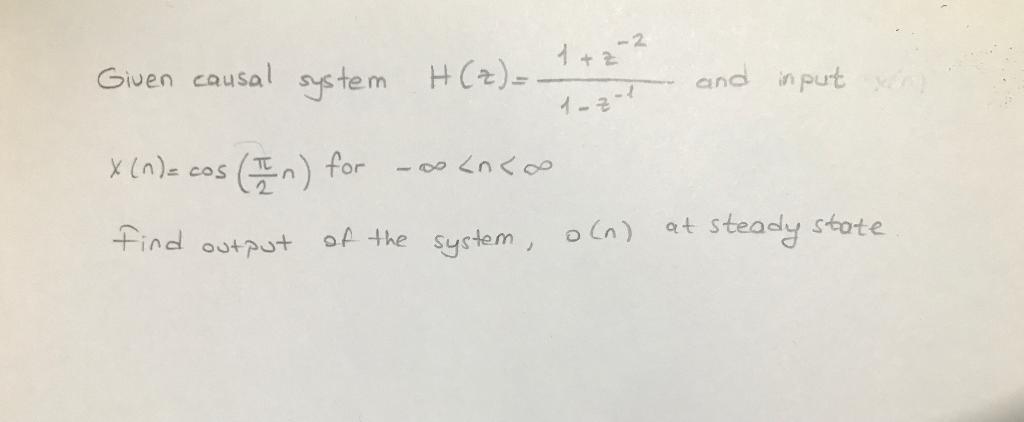 Given causal system H(z)= (1+z^-2)/(1-z^-1) and input
x(n)= cos(π/2 n) for -∞<n<∞
Find output of the system, o(n) at steady state